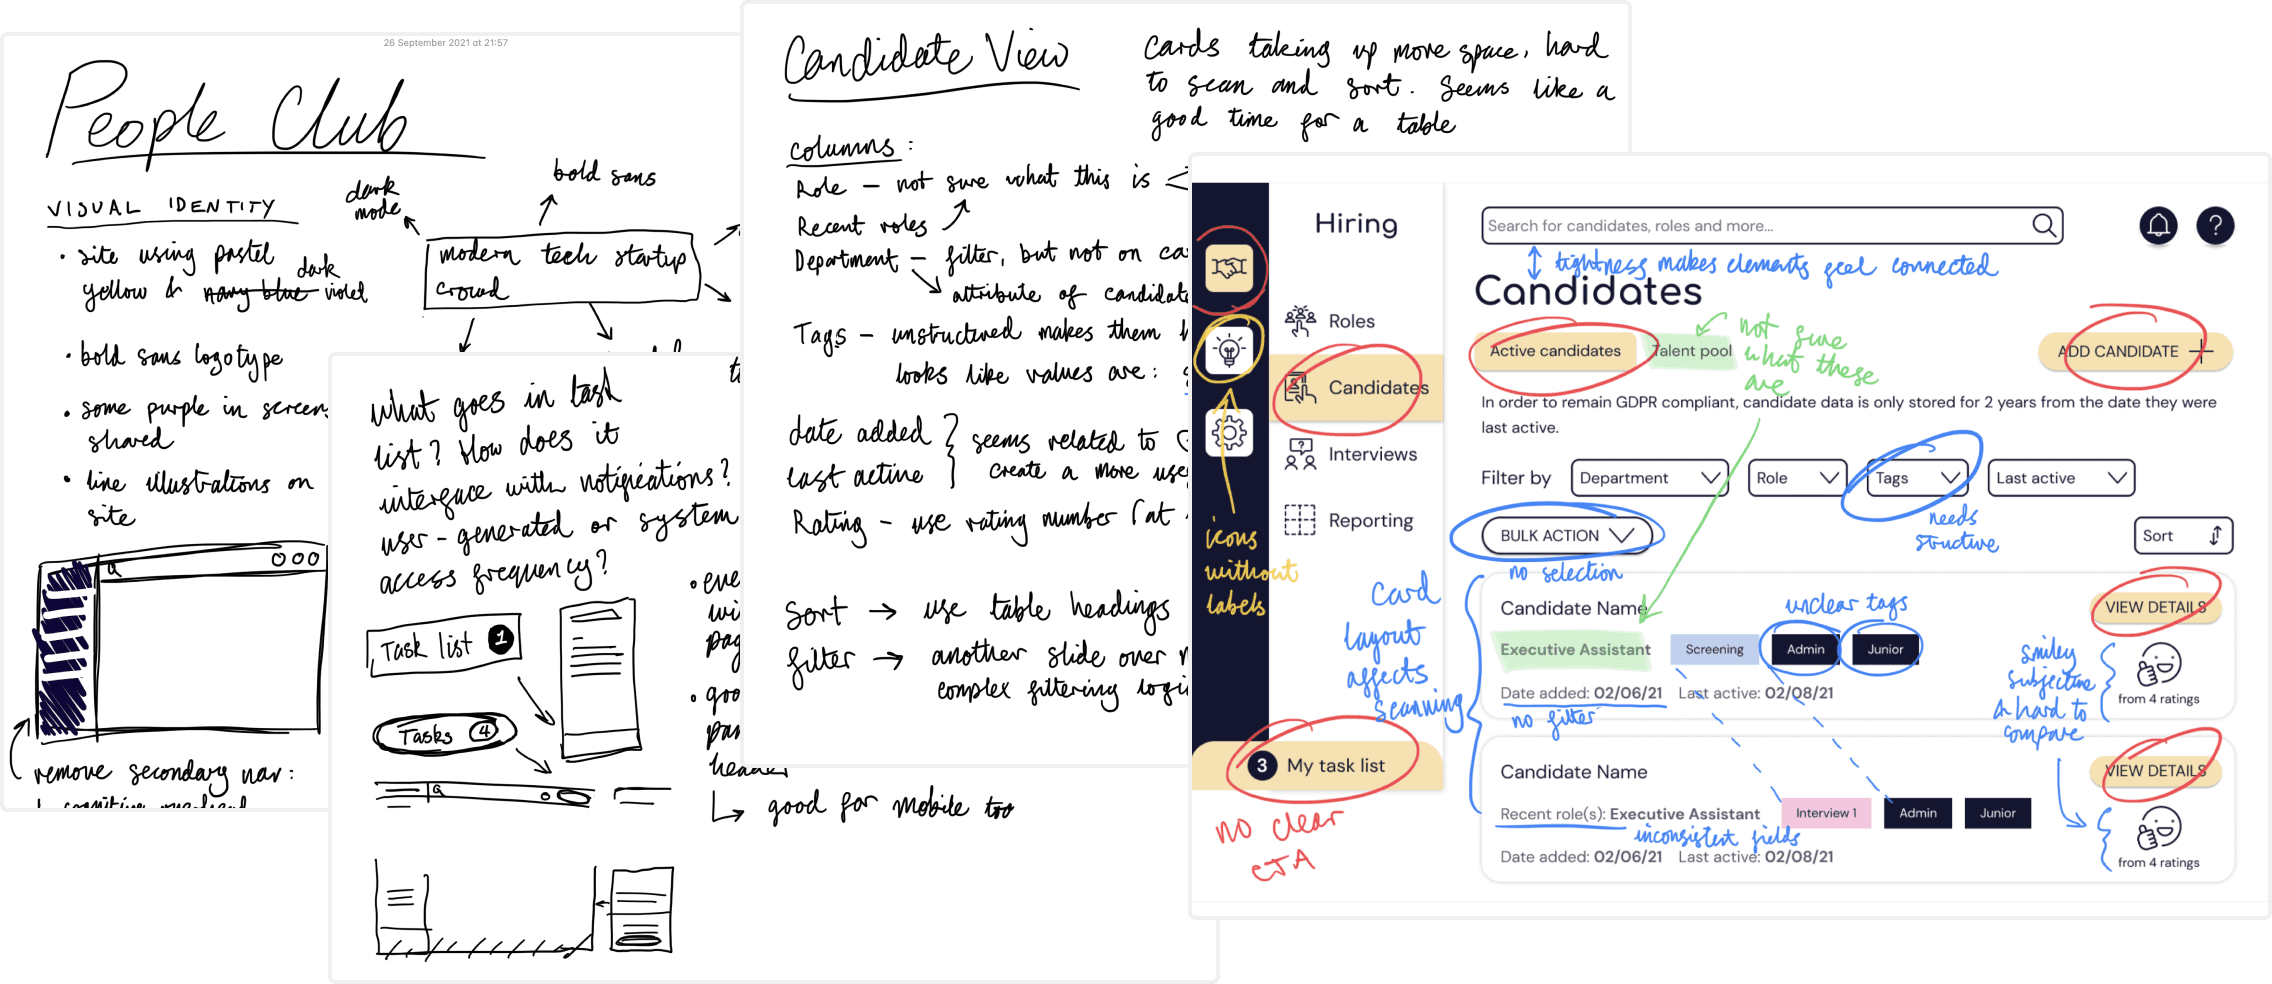 26 September 2021 at 21:57
People Club
VISUAL IDENTITY
• site using pastel
yellow & navy blue dark violet
• bold sans logotype
• some purple in screen
shared
• line illustrations on
site
dark
mode
bold sans
modern tech startup
crowd
remove secondary nav:
What goes in task
list? How does it
interface with notifications?
user-generated or system
access frequency?
Task list 1
Tasks 4
• eve
wi
pag
• goo
pa
header
↳ good for mobile too
Candidate View
Cards taking up more space, hard
to scan and sort. Seems like a
good time for a table
columns:
Role – not sure what this is
Recent roles
Department – filter, but not on ca
attribute of candidate
Tags – unstructured makes them h
looks like values are:
date added
last active
seems related to
create a more use
Rating – use rating number (at
Sort → use table headings
filter → another slide over
complex filtering logi
Hiring
Roles
Candidates
Interviews
Reporting
3 My task list
no clear
CTA
icons
without
labels
Search for candidates, roles and more...
?
tightness makes elements feel connected
Candidates
Active candidates
Talent pool
not sure
what these
are
ADD CANDIDATE
In order to remain GDPR compliant, candidate data is only stored for 2 years from the date they were
last active.
Filter by
Department
Role
Tags
Last active
needs
structure
BULK ACTION
no selection
Sort
card
layout
affects
scanning
Candidate Name
unclear tags
VIEW DETAILS
Executive Assistant
Screening
Admin
Junior
Date added: 02/06/21 Last active: 02/08/21
no filter
from 4 ratings
smiley
subjective
& hard to
compare
Candidate Name
VIEW DETAILS
Recent role(s): Executive Assistant
Interview 1
Admin
Junior
inconsistent fields
Date added: 02/06/21 Last active: 02/08/21
from 4 ratings